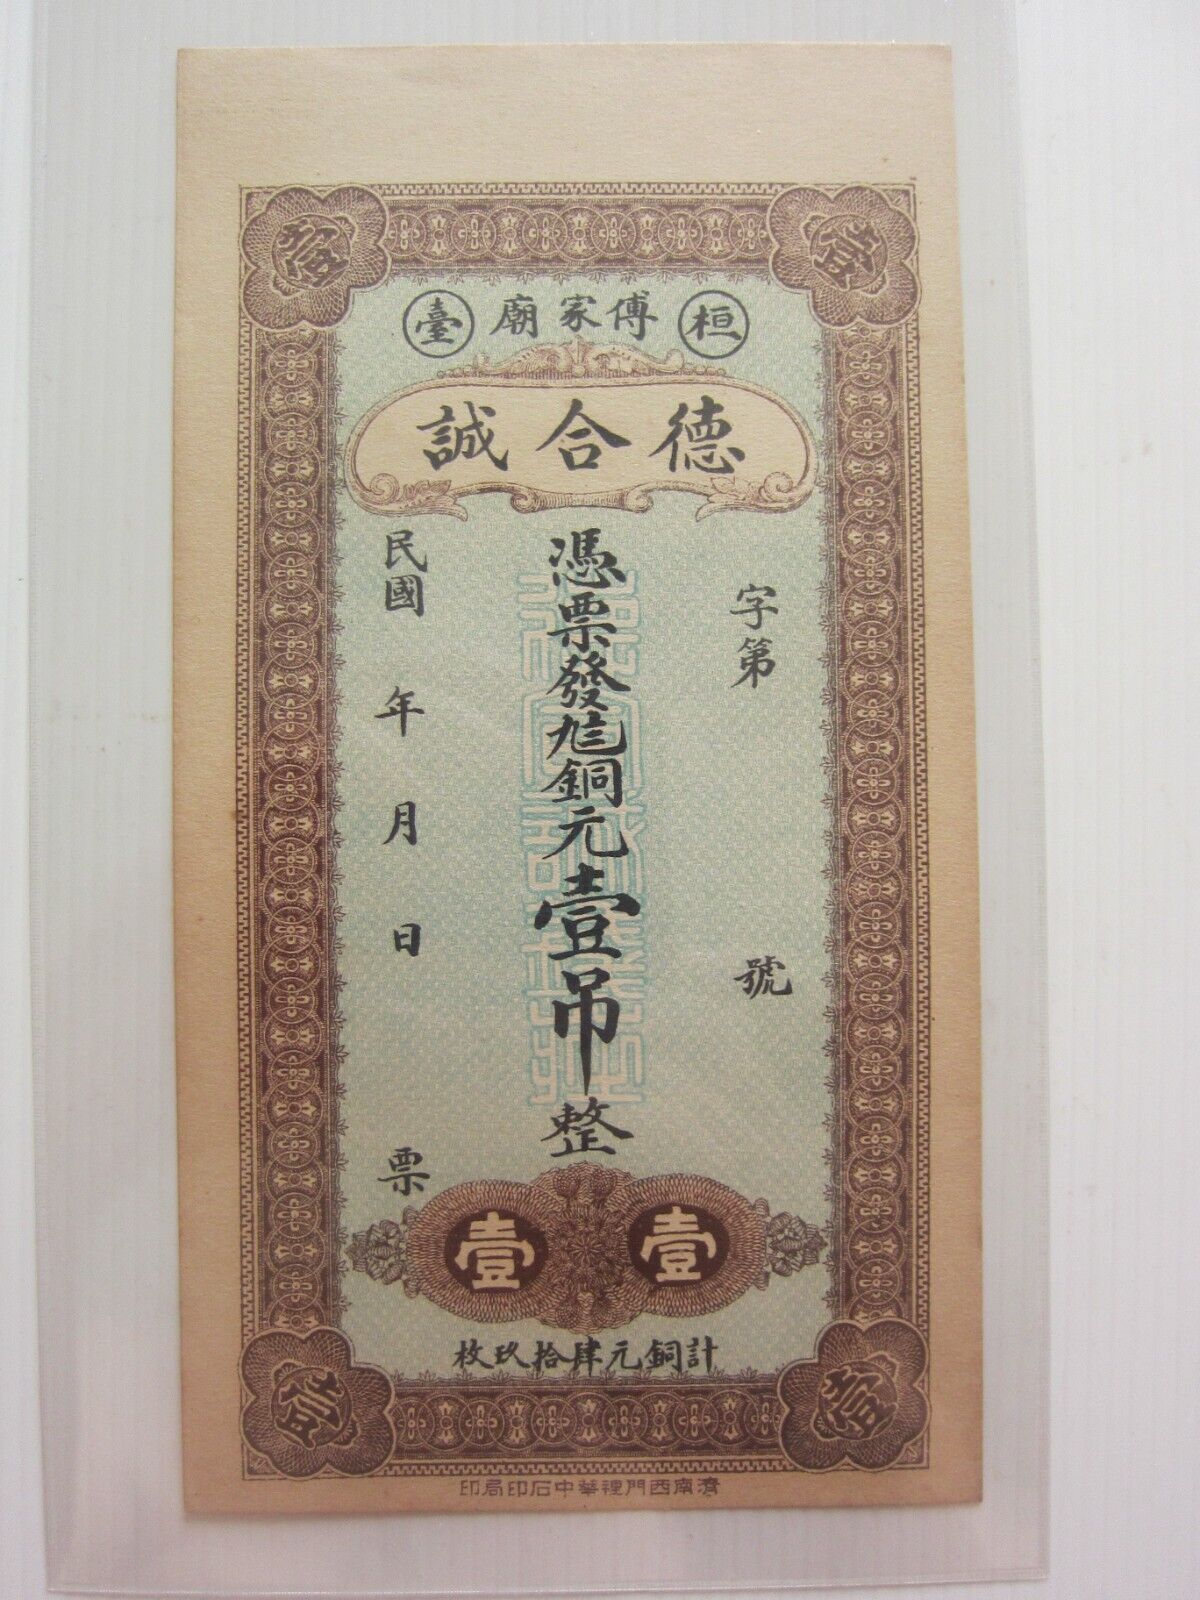 桓 傅家廟 臺
德合誠
字第 號
憑票發九三銅元壹吊整
民國 年 月 日 票
壹 壹
計銅元肆拾玖枚
壹 壹
壹 壹
濟南西門裡華中石印局印